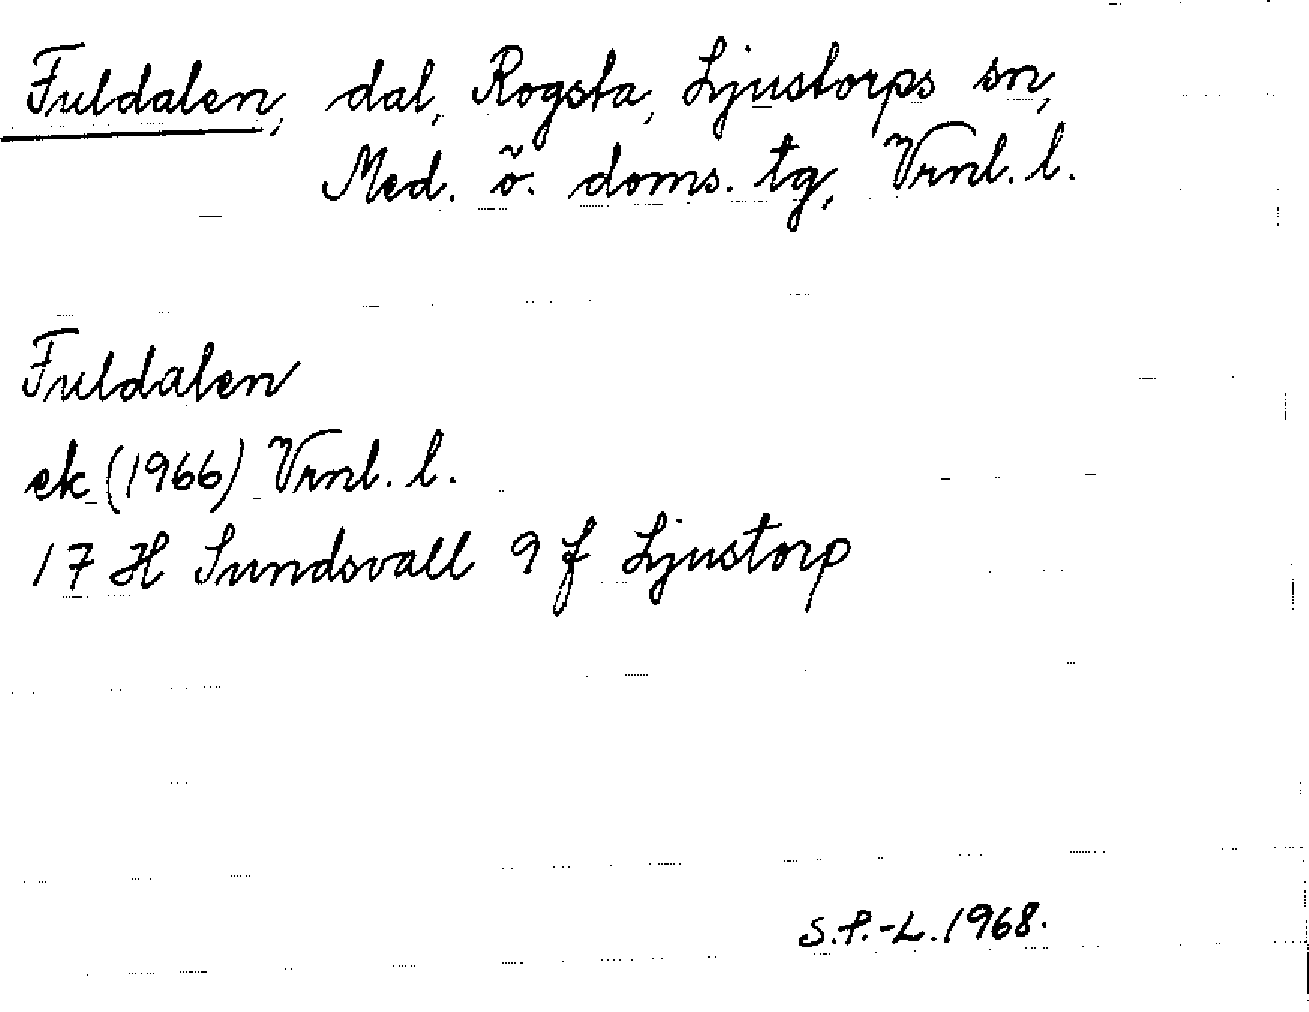 Fuldalen, dal, Rogsta, Ljustorps sn,
Med. ö. doms. tg, Vrnl. l.
Fuldalen
ek (1966) Vrnl. l.
17 H Sundsvall 9 f Ljustorp
S.P.-L. 1968.